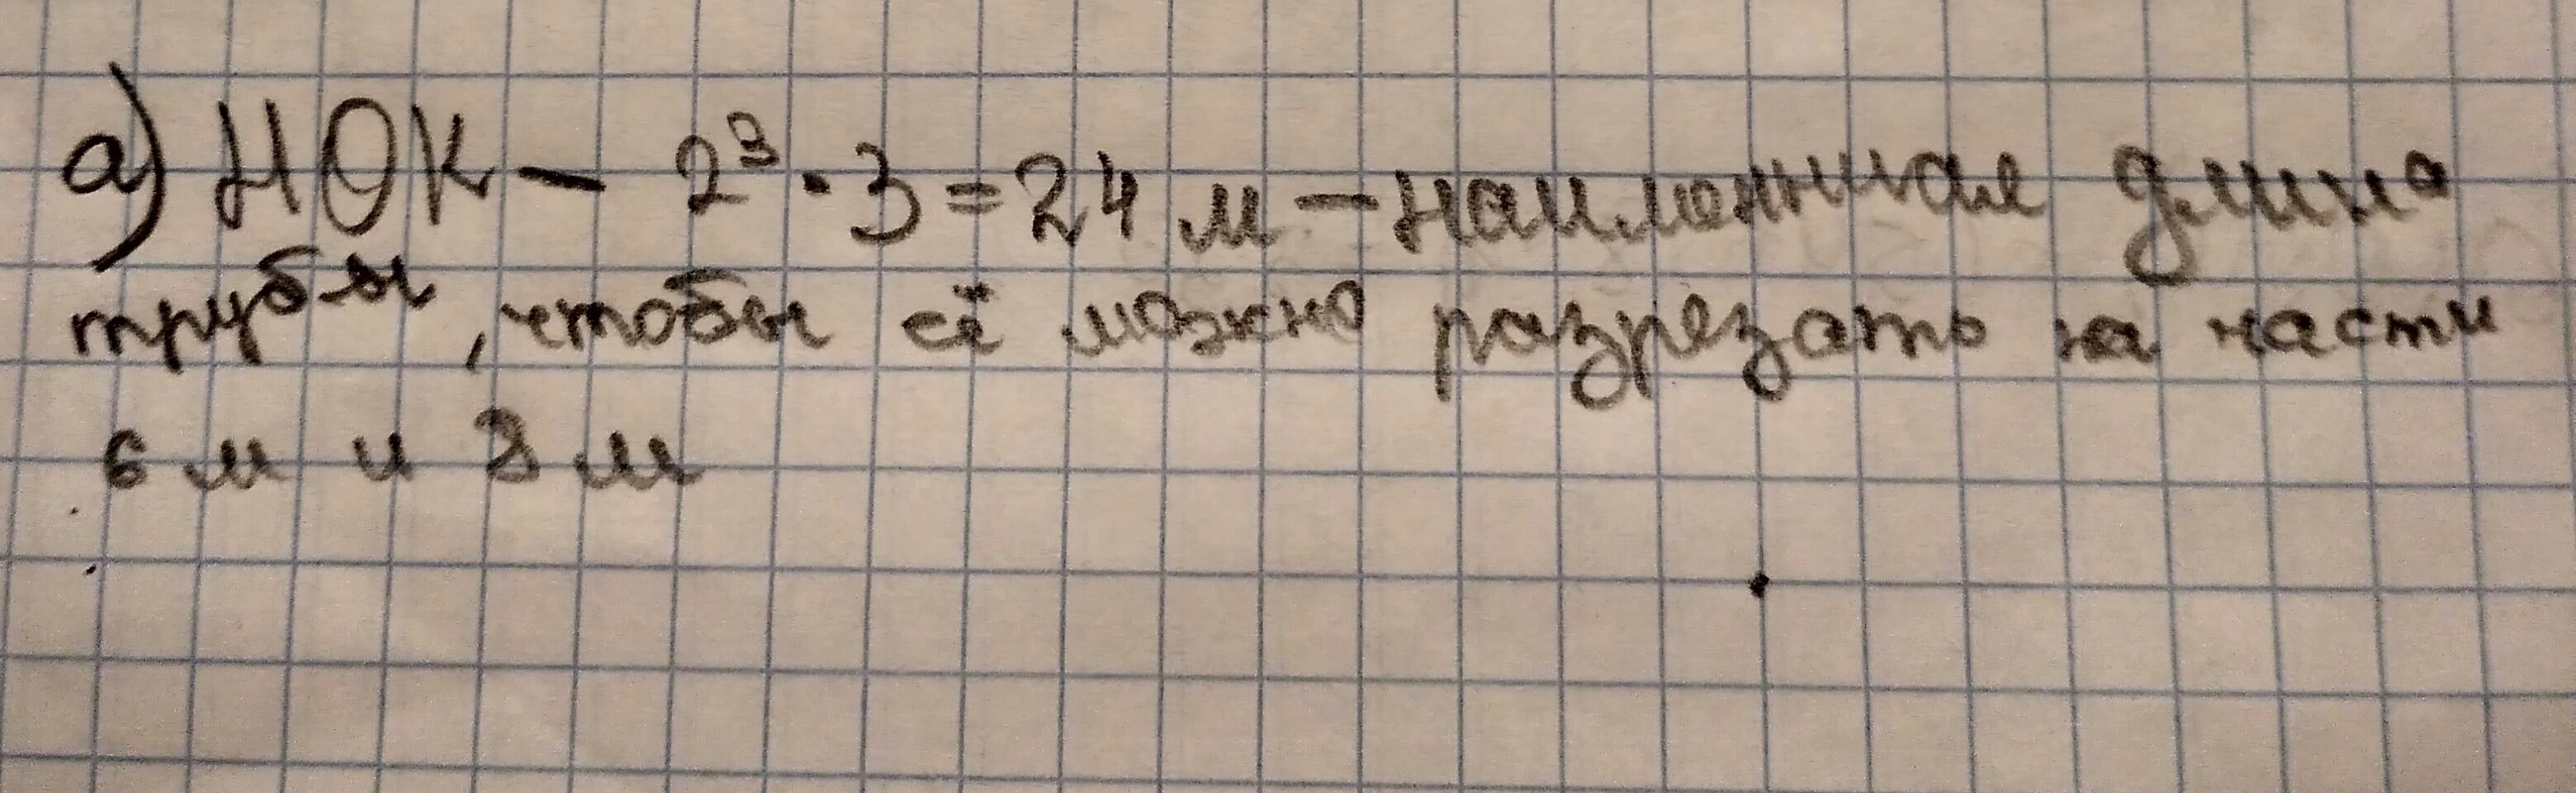 а) НОК – 2³·3=24 м – наименьшая длина
трубы, чтобы её можно разрезать на части
6 м и 8 м